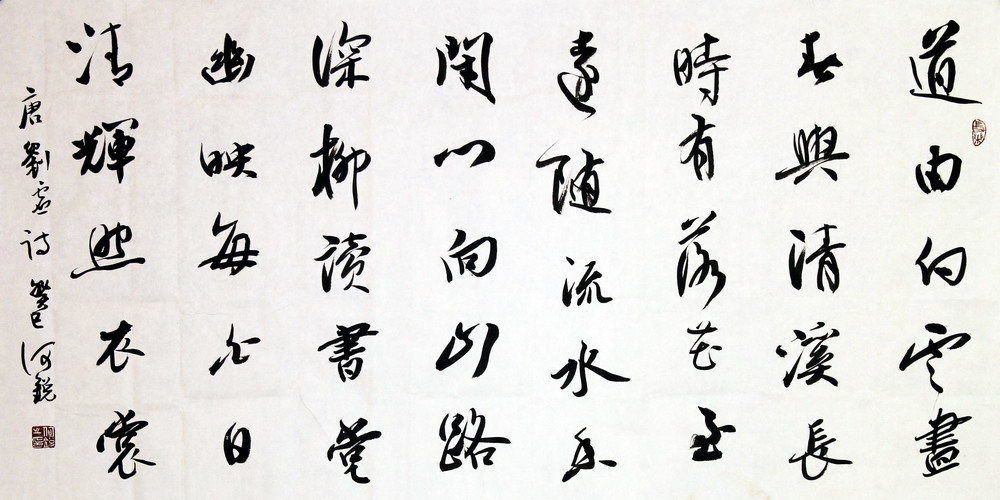 道由白雲盡
春與清溪長
時有落花至
遠隨流水香
閑門向山路
深柳讀書堂
幽映每白日
清輝照衣裳
唐劉虛詩癸巳何銳